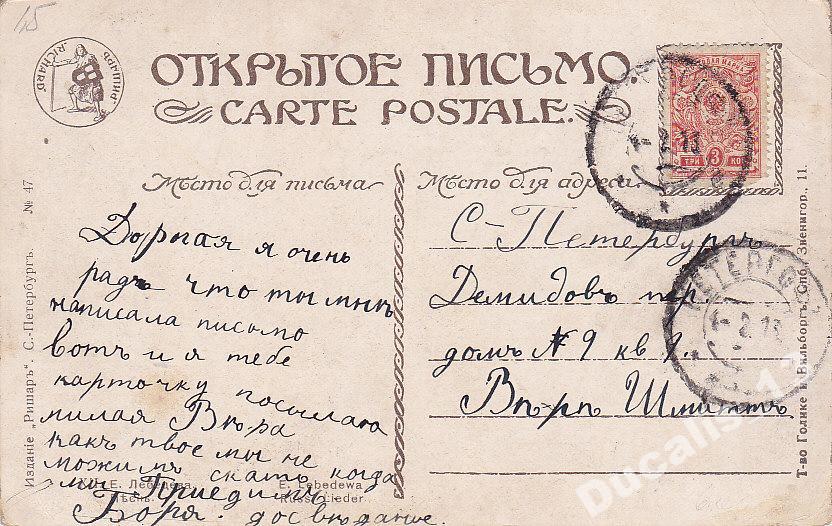 15
РИШАРЪ
RICHARD
ОТКРЫТОЕ ПИСЬМО.
CARTE POSTALE.
ТРИ 3 КОП
2 13
Мѣсто для письма
Мѣсто для адреса
Дорогая я очень
радъ что ты мнѣ
написала письмо
вотъ и я тебе
карточку посылаю
милая Вѣра
какъ твое мы не
можимъ скать когда
мы приедимъ
Боря. досвидание.
С-Петербургъ
Демидовъ пер.
домъ № 9 кв 9.
Вѣрѣ Шмиттъ
ПЕТЕРГОФ
2 13
Е. Лебедева
Пѣсня
E. Lebedewa
Russ. Lieder
Изданіе „Ришаръ“. С.-Петербургъ. № 47
Т-во Голике и Вильборгъ. Спб. Звенигор., 11.
Ducalis-13